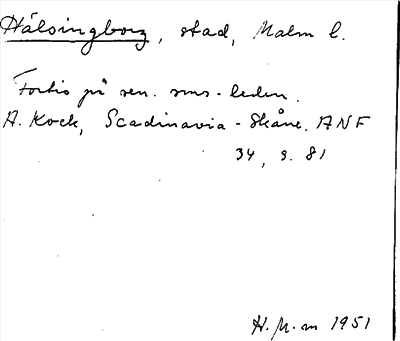 Hälsingborg, stad, Malm l.
Fortis på sen. sms-leden.
A. Kock, Scadinavia - Skåne. ANF
34, s. 81
H. M-m 1951